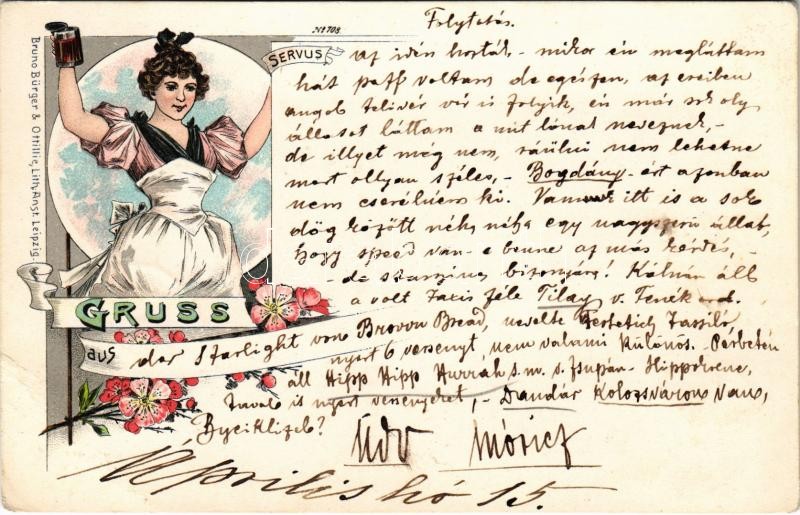 Folytatás.
No 708.
SERVUS
az idén hozták – mikor én megláttam
hát paff voltam de egészen, az ereiben
angol telivér vér is folyik, én már sok oly
állatot láttam a mit lónak neveznek, –
de illyet még nem, ráülni nem lehetne
mert ollyan széles, – Bogdány-ért azonban
nem cserélném ki. Vannak itt is a sok
dög között néha néha egy nagyszerű állat,
hogy speed van-e benne az más kérdés, –
– de staszinus bizonyára! Kálnán áll
a volt Taxis féle Tilay v. Fenék ord.
GRUSS
aus
der Starlight von Brown Bread, nevelte Festetich Tassiló,
nyert 6 versenyt, nem valami különös. – Perbetén
áll Hipp Hipp Hurrah s. m. s. Zsupán – Hippocrene,
tavali is nyert versenyeket, – Dandár Kolozsváron van,
Byciklizel?
Üdv Móricz
Április hó 15.
Bruno Bürger & Ottillie, Lith. Anst. Leipzig.